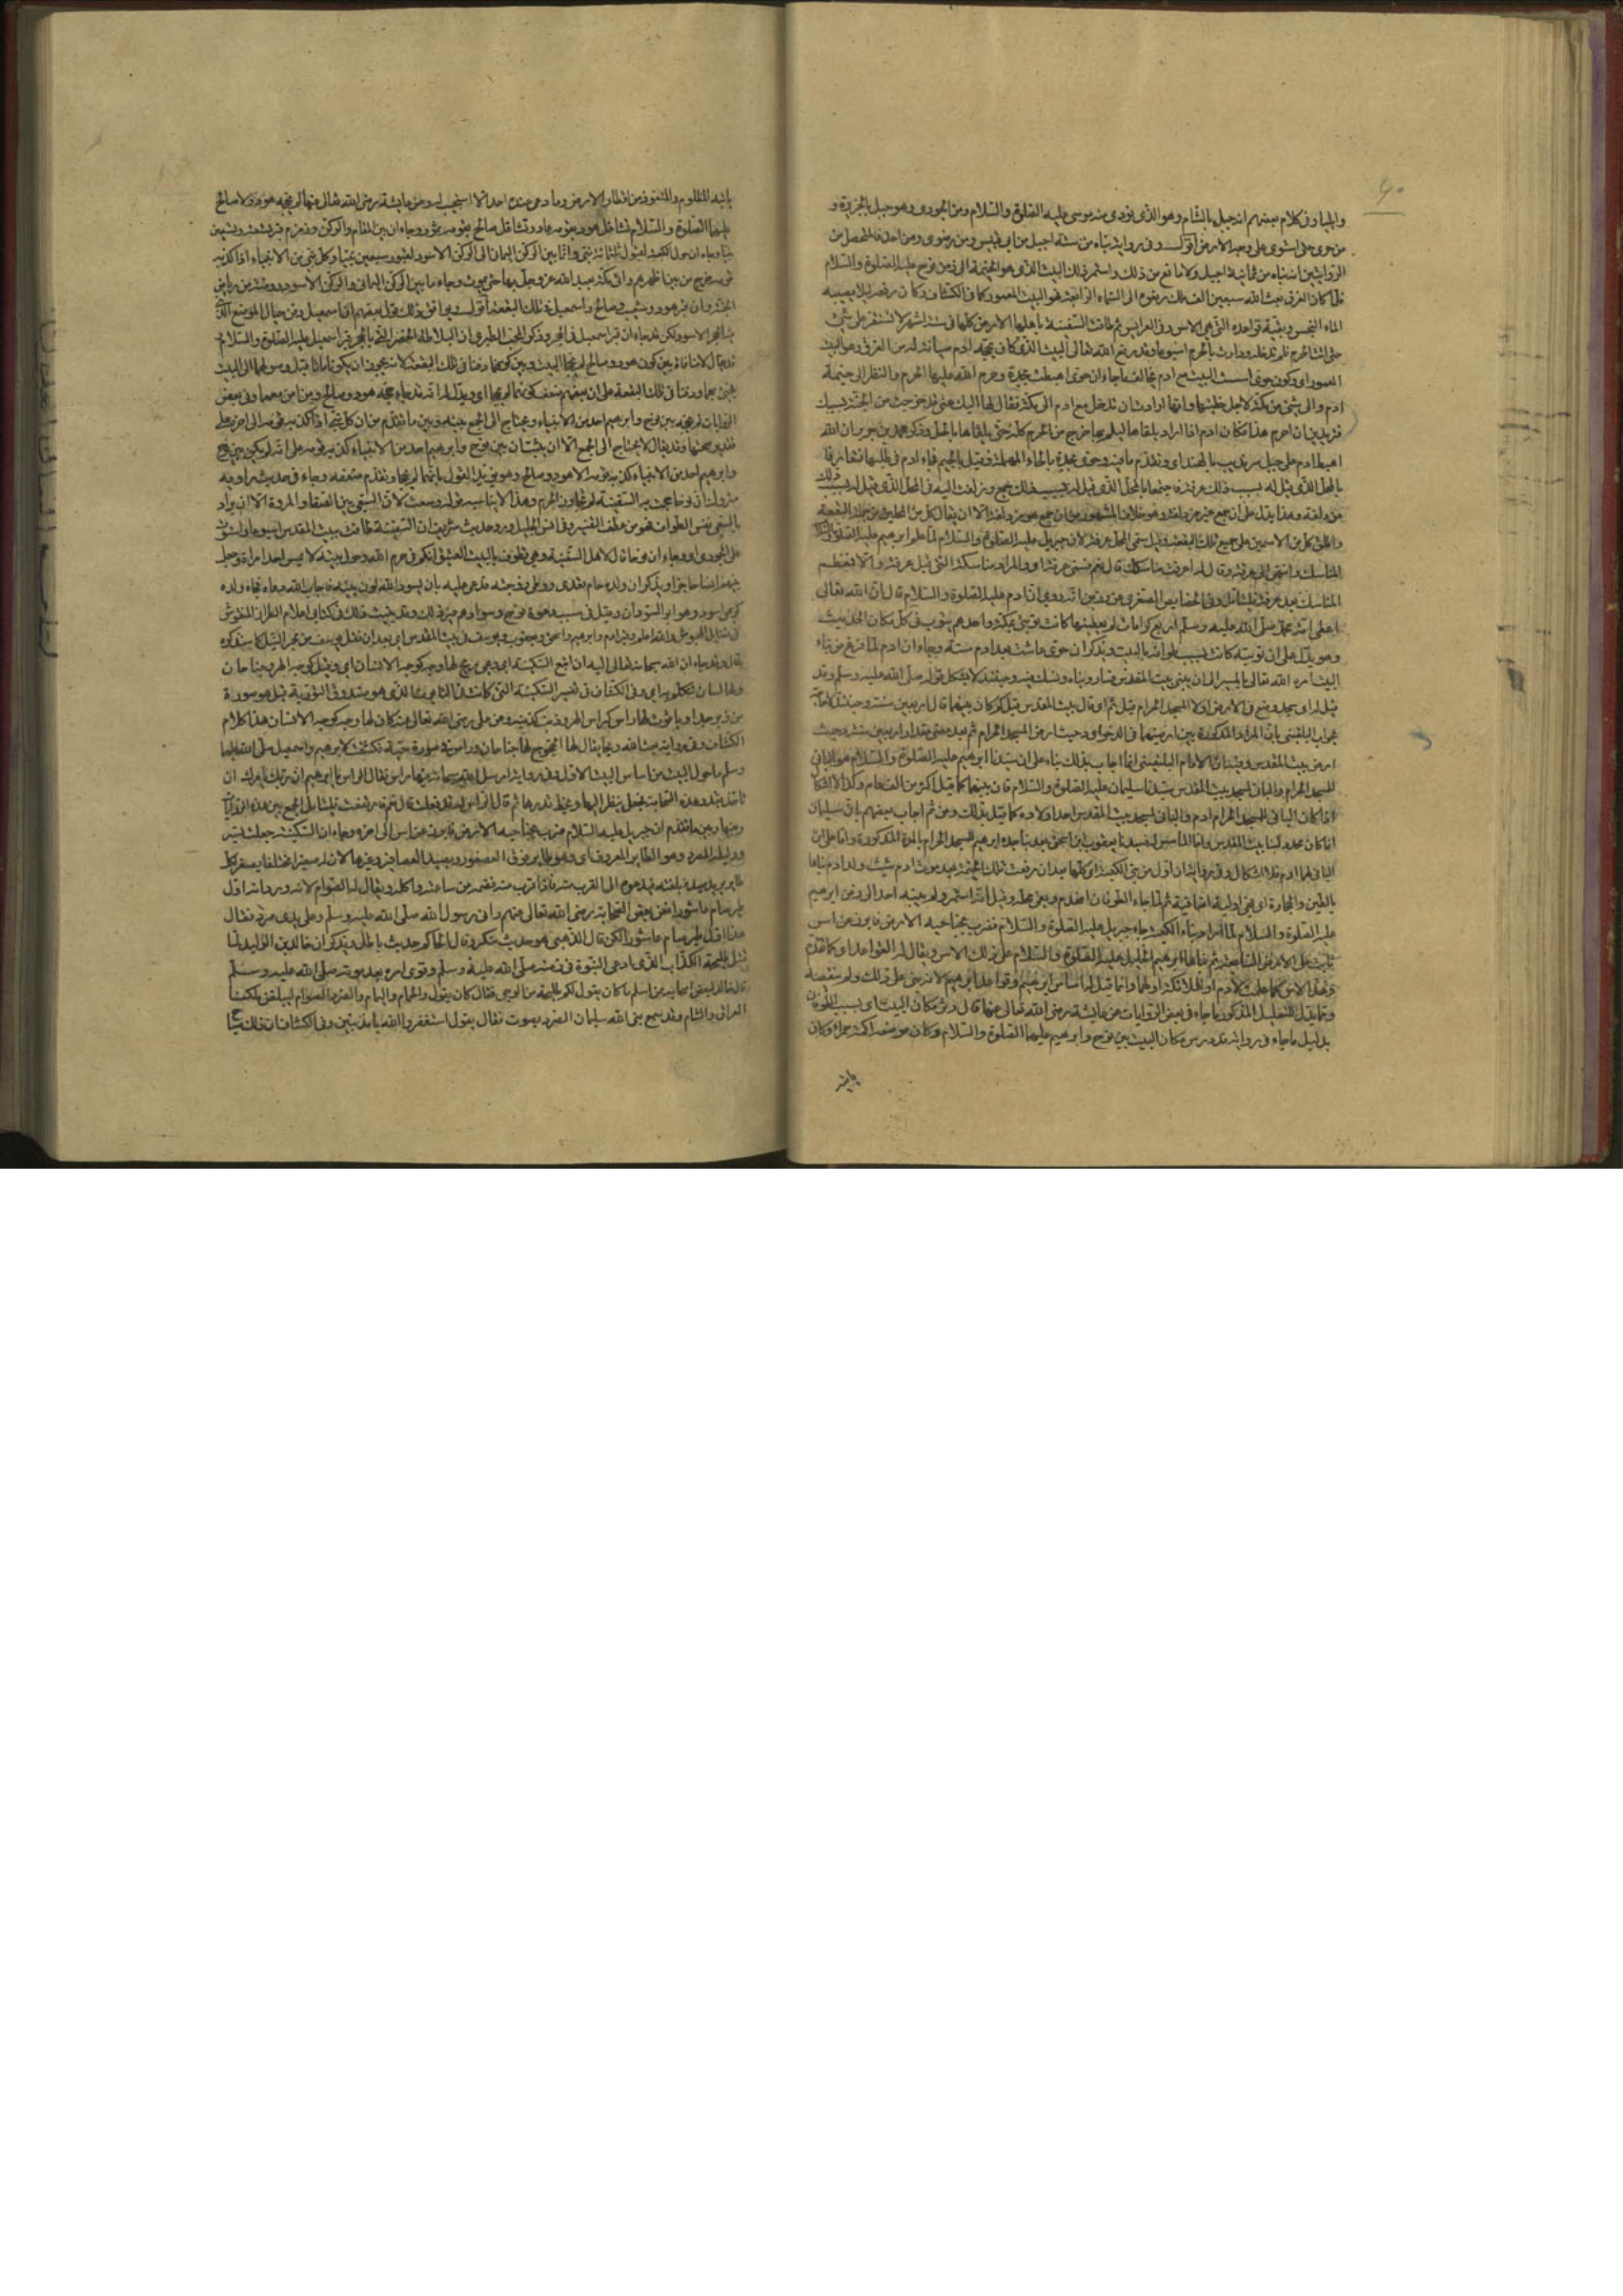 ٤٠
والجبار وفى كلام بعضهم انه جبل بالشام وهو الذى نودى منه موسى عليه الصلوة والسلام ومن الجودى وهو جبل بالجزيرة و
من حرى حتى استوى على وجه الارض اقول وفى رواية بناه من ستة اجبل من ابى قبيس ومن رضوى ومن احد فالمتحصل من
الروايتين انه بناه من ثمانية اجبل ولا مانع من ذلك واستمر ذلك البيت الذى هو الخيمة الى زمن نوح عليه الصلوة والسلام
فلما كان الغرق بعث الله سبعين الف ملك رفعوه الى السماء الرابعة فهو البيت المعمور كما فى الكشاف وكان رفعه لئلا يصيبه
الماء النجس وبقية قواعده التى هى الاس وفى العرايس ثم طافت السفينة باهلها الارض كلها فى ستة اشهر لا تستقر على شئ
حتى اتت الحرم فلم تدخله ودارت بالحرم اسبوعا وقد رفع الله تعالى البيت الذى كان يحجه ادم صيانة له من الغرق وهو البيت
المعمور اى وكون حوى اسست البيت مع ادم يخالفه ما جاء ان حوى اهبطت بجدة وحرم الله عليها الحرم والنظر الى خيمة
ادم والى شئ من مكة لاجل خطيئتها وانها ارادت ان تدخل مع ادم الى مكة فقال لها اليك عنى قد خرجت من الجنة بسببك
فتريدين ان احرم هذا فكان ادم اذا اراد يلقاها ليلم بها خرج من الحرم كله حتى يلقاها بالحل وذكر محمد بن جرير ان الله
اهبط ادم على جبل سرنديب بالهند اى وتقدم ما فيه وحوى بجدة بالحاء المهملة وقيل بالجيم فجاء ادم فى طلبها فتعارفا
بالمحل الذى قيل له بسبب ذلك عرفة فاجتمعا بالمحل الذى قيل له بسبب ذلك جمع وزلفت اليه فى المحل الذى قيل له بسبب ذلك
مزدلفة وهذا يدل على ان جمع غير مزدلفة وهو خلاف المشهور من ان جمع هو مزدلفة الا ان يقال كل من المحلين من جملة البقعة
واطلق كل من الاسمين على جميع تلك البقعة وقيل سمى المحل عرفة لان جبريل عليه الصلوة والسلام لما علم ابرهيم عليه الصلوة والسلام
المناسك وانتهى الى عرفة وقال له اعرفت مناسكك قال نعم فسمى عرفة اى والمراد مناسكه التى قبل عرفة والا فمعظم
المناسك بعد عرفة فليتأمل وفى الخصايص الصغرى عن رزين انه روى ان ادم عليه الصلوة والسلام قال ان الله تعالى
اعطى امة محمد صلى الله عليه وسلم اربع كرامات لم يعطنيها كانت توبتى بمكة واحدهم يتوب فى كل مكان الحديث
وهو يدل على ان توبته كانت بسبب طوافه بالبيت ويذكر ان حوى عاشت بعد ادم سنة وجاء ان ادم لما فرغ من بناء
البيت امره الله تعالى بالمسير الى ان يبنى بيت المقدس فسار وبناه ونسك فيه وحينئذ لا يشكل قوله صلى الله عليه وسلم وقد
قيل له اى مسجد وضع فى الارض اولا المسجد الحرام قيل ثم اى قال بيت المقدس قيل كم كان بينهما قال اربعين سنة وحينئذ لا حاجة
لجواب البلقينى بان المراد المذكورة بين ارضيهما فى الدحو اى دحيت ارض المسجد الحرام ثم بعد مضى مقدار اربعين سنة دحيت
ارض بيت المقدس وفيه ان الامام البلقينى انما اجاب بذلك بناء على ان سيدنا ابرهيم عليه الصلوة والسلام هو البانى
للمسجد الحرام والبانى لمسجد بيت المقدس سيدنا سليمان عليه الصلوة والسلام فان بينهما كما قيل اكثر من الف عام وكذا لا اشكال
اذا كان البانى للمسجد الحرام ادم والبانى لمسجد بيت المقدس احد اولاده كما قيل بذلك ومن ثم اجاب بعضهم بان سليمان
انما كان مجددا لبنا بيت المقدس واما المأسس له فسيدنا يعقوب ابن اسحق بعد بنا جده ابرهيم المسجد الحرام بالمدة المذكورة واما على ان
البانى لهما ادم فلا اشكال وفى رواية ان اول من بنى الكعبة اى كلها بعد ان رفعت تلك الخيمة بعد موت ادم شيث ولد ادم بناها
بالطين والحجارة اى فهى اولية اضافية ثم لما جاء الطوفان انهدم وبقى محله وقيل انه استمر ولم يبنه احد الى زمن ابرهيم
عليه الصلوة والسلام لما اراد بناء الكعبة جاء جبريل عليه الصلوة والسلام فضرب بجناحيه الارض فابرز عن اس
ثابت على الارض السابعة ثم بناها ابرهيم الخليل عليه الصلوة والسلام على ذلك الاس ويقال له القواعد اى كما تقدم
وهذا الاس كما علمت لادم او للملائكة او لهما وانما قيل له اساس ابرهيم وقواعد ابرهيم لانه بنى على ذلك ولم ينقضه
ومما يدل للتعليل المذكور ما جاء فى بعض الروايات عن عايشة رضى الله تعالى عنها قال دثر مكان البيت اى بسبب الطوفان
بدليل ما جاء فى رواية قد درس مكان البيت بين نوح وابرهيم عليهما الصلوة والسلام وكان موضعه اكمة حمراء وكان
يأتيه
يأتيه المظلوم والمتعوذ من اقطار الارض وما دعى عنده احد الا استجيب له وعن عايشة رضى الله تعالى عنها لم يحجه هود ولا صالح
عليهما الصلوة والسلام لتشاغل هود بقومه عاد وتشاغل صالح بقومه ثمود وجاء ان بين المقام والركن وزمزم قبر تسعة وتسعين
نبيا وجاء ان حول الكعبة لقبور ثلثمائة نبى وان ما بين الركن اليمانى الى الركن الاسود لقبور سبعين نبيا وكل نبى من الانبياء اذا كذبه
قومه خرج من بين اظهرهم واتى مكة يعبد الله عز وجل بها حتى يموت وجاء ما بين الركن اليمانى والركن الاسود روضة من رياض
الجنة وان قبر هود وشعيب وصالح واسمعيل فى تلك البقعة اقول ويوافق ذلك قول بعضهم ان اسمعيل دفن حيال الموضع الذى
فيه الحجر الاسود لكن قد جاء ان قبر اسمعيل فى الحجر وذكر المحب الطبرى ان البلاطة الخضراء التى بالحجر قبر اسمعيل عليه الصلوة والسلام
وقد يقال لا منافاة بين كون هود وصالح لم يحجا البيت وبين كونهما دفنا فى تلك البقعة لانه يجوز ان يكونا ماتا قبل وصولهما الى البيت
فجئ بهما ودفنا فى تلك البقعة على ان بعضهم ضعف كونهما لم يحجا اى ويدل له انه قد جاء حجه هود وصالح ومن امن معهما وفى بعض
الروايات لم يحجه بين نوح وابرهيم احد من الانبياء ويحتاج الى الجمع بينه وبين ما تقدم من ان كل نبى اذا كذبه قومه الى اخره على
تقدير صحتها وقد يقال لا يحتاج الى الجمع الا ان يثبت ان بين نوح وابرهيم احد من الانبياء كذبه قومه على انه لم يكن بين نوح
وابرهيم احد من الانبياء كذبه قومه الا هود وصالح وهو يؤيد القول بانهما لم يحجا وتقدم ضعفه وجاء فى حديث راويه
متروك ان نوحا حجت به السفينة لم تجاوز الحرم وهذا لا يناسبه قوله وسعت لان السعى بين الصفا والمروة الا ان يراد
بالسعى نفس الطواف فهو من عطف التفسير وفى انس الجليل ورد حديث شريف ان السفينة طافت ببيت المقدس اسبوعا واستوت
على الجودى وجاء ان نوحا قال لاهل السفينة وهى تطوف بالبيت العتيق انكم فى حرم الله وحول بيته لا يمس احد امرأة وجعل
بينهم وبين النسا حاجزا ويذكر ان ولده حام تعدى ووطئ زوجته فدعى عليه بان يسود الله لون بنيه فاجاب الله دعاه فجاء ولده
كوش اسود وهو ابو السودان وقيل فى سبب دعوة نوح وسوادهم غير ذلك وقد بينت ذلك فى كتابى اعلام الطراز المنقوش
فى فضايل الحبوش والله اعلم وقبر ادم وابرهيم واسحق ويعقوب ويوسف فى بيت المقدس اى بعد ان نقل يوسف من بحر النيل كما سنذكره
وقد جاء ان الله سبحانه اوحى اليه ان اتبع السكينة اى وهى ريح لها وجه كوجه الانسان اى وقيل كوجه الهر وجناحان
ولها لسان تتكلم به اى وفى الكشاف فى تفسير السكينة التى كانت فى التابوت الذى هو صندوق التوراة قيل هو صورة
من زبرجد او ياقوت لها راس كراس الهر وذنب كذنبه وعن على رضى الله تعالى عنه كان لها وجه كوجه الانسان هذا كلام
الكشاف وفى رواية بعث الله ريحا يقال لها الخجوج لها جناحان وراس فى صورة حية فكشفت لابرهيم واسمعيل صلى الله عليهما
وسلم ما حول البيت من اساس البيت الاول وفى رواية ارسل الله سحابة فيها راس فقال الراس يا ابرهيم ان ربك يأمرك ان
تأخذ بقدر هذه السحابة فجعل ينظر اليها ويخط قدرها ثم قال الراس له قد فعلت قال نعم فارتفعت فليتأمل الجمع بين هذه الروايات
وبينها وبين ما تقدم ان جبريل عليه السلام ضرب بجناحيه الارض فابرز عن اس الى اخره وجاء ان السكينة جعلت تسير
ودليله الصرد وهو الطاير المعروف اى وهو طاير فوق العصفور ويصيد العصافير وغيرها لان له صفيرا مختلفا يصفر لكل
طاير يريد صيده بلغته فيدعوه الى القرب منه فاذا قرب منه قصمه من ساعته واكله ويقال له الصوام لانه ورد انه اول
طير صام عاشورا فعن بعض الصحابة رضى الله تعالى عنهم رانى رسول الله صلى الله عليه وسلم وعلى يدى صرد فقال
هذا اول طير صام عاشورا لكن قال الذهبى هو حديث منكر وقال الحاكم حديث باطل ويذكر ان خالد بن الوليد لما
قتل طليحة الكذاب الذى ادعى النبوة فى زمنه صلى الله عليه وسلم وقوى امره بعد موته صلى الله عليه وسلم
قال خالد لبعض اصحابه من اسلم ما كان يقول لكم طليحة من الوحى فقال كان يقول والحمام واليمام والصرد الصوام ليبلغن ملكنا
العراق والشام وقد سمع نبى الله سليمان الصرد يصوت فقال يقول استغفروا الله يا مذنبين وفى الكشاف ان ذلك صياح